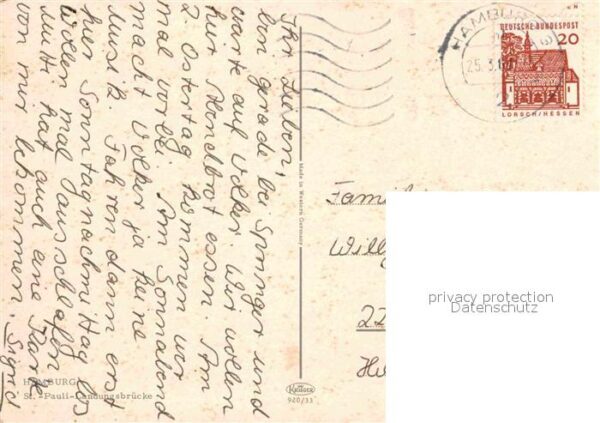 Ihr Lieben,
bin gerade bei Springer und
warte auf Volker. Wir wollen
hier Abendbrot essen. Am
2. Ostertag kommen wir
mal vorbei. Am Sonnabend
macht Volker ja keine
Musik. Fahren dann erst
hier Sonntagnachmittag los
Wollen mal ausschlafen
Mutti hat auch eine Karte
von mir bekommen. Sigrid
HAMBURG
St. Pauli-Landungsbrücke
Made in Western Germany
Krüger
920/33
HAMBURG
25. 3.
DEUTSCHE BUNDESPOST
20
LORSCH/HESSEN
Famil
Will
22
privacy protection
Datenschutz